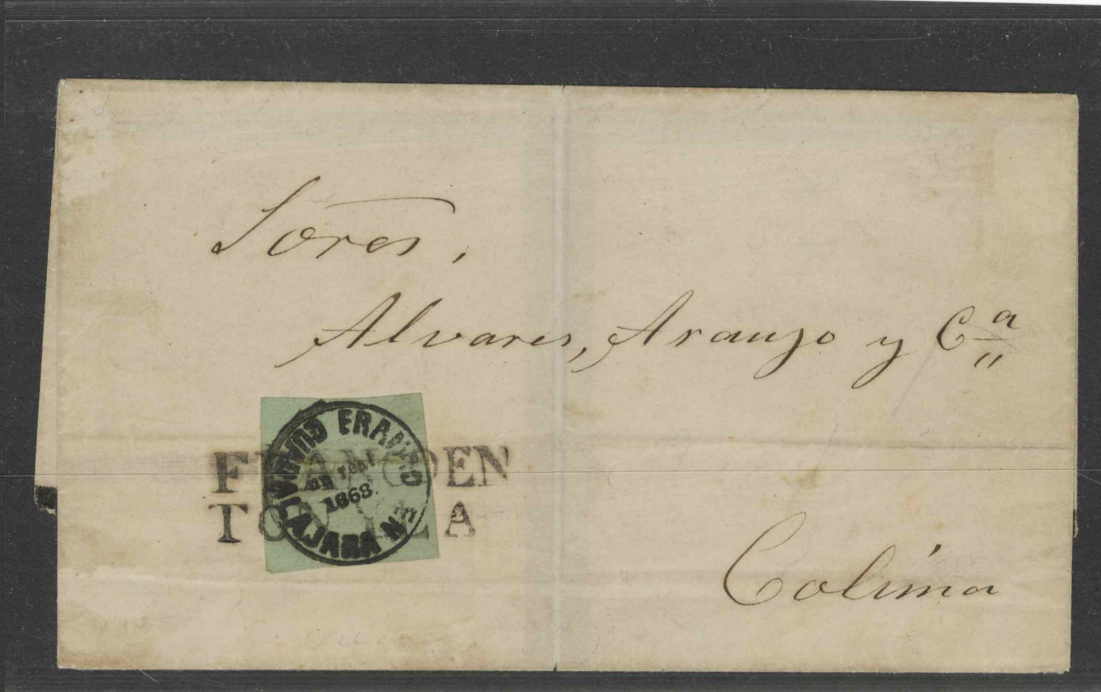 Sōres,
Alvares, Araujo y Cª
FRANCO EN
TONILA
FRANCO EN
GUADALAJARA
1868.
Colima